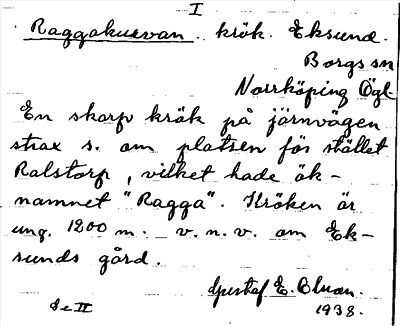 I
Raggakurvan. krök. Eksund.
Borgs sn
Norrköping Ögl.
En skarp krök på järnvägen
strax s. om platsen för stället
Ralstorp, vilket hade ök-
namnet "Ragga". Kröken är
ung. 1200 m. v.n.v. om Ek-
sunds gård.
Gustaf E. Bluan.
1938.
Se II